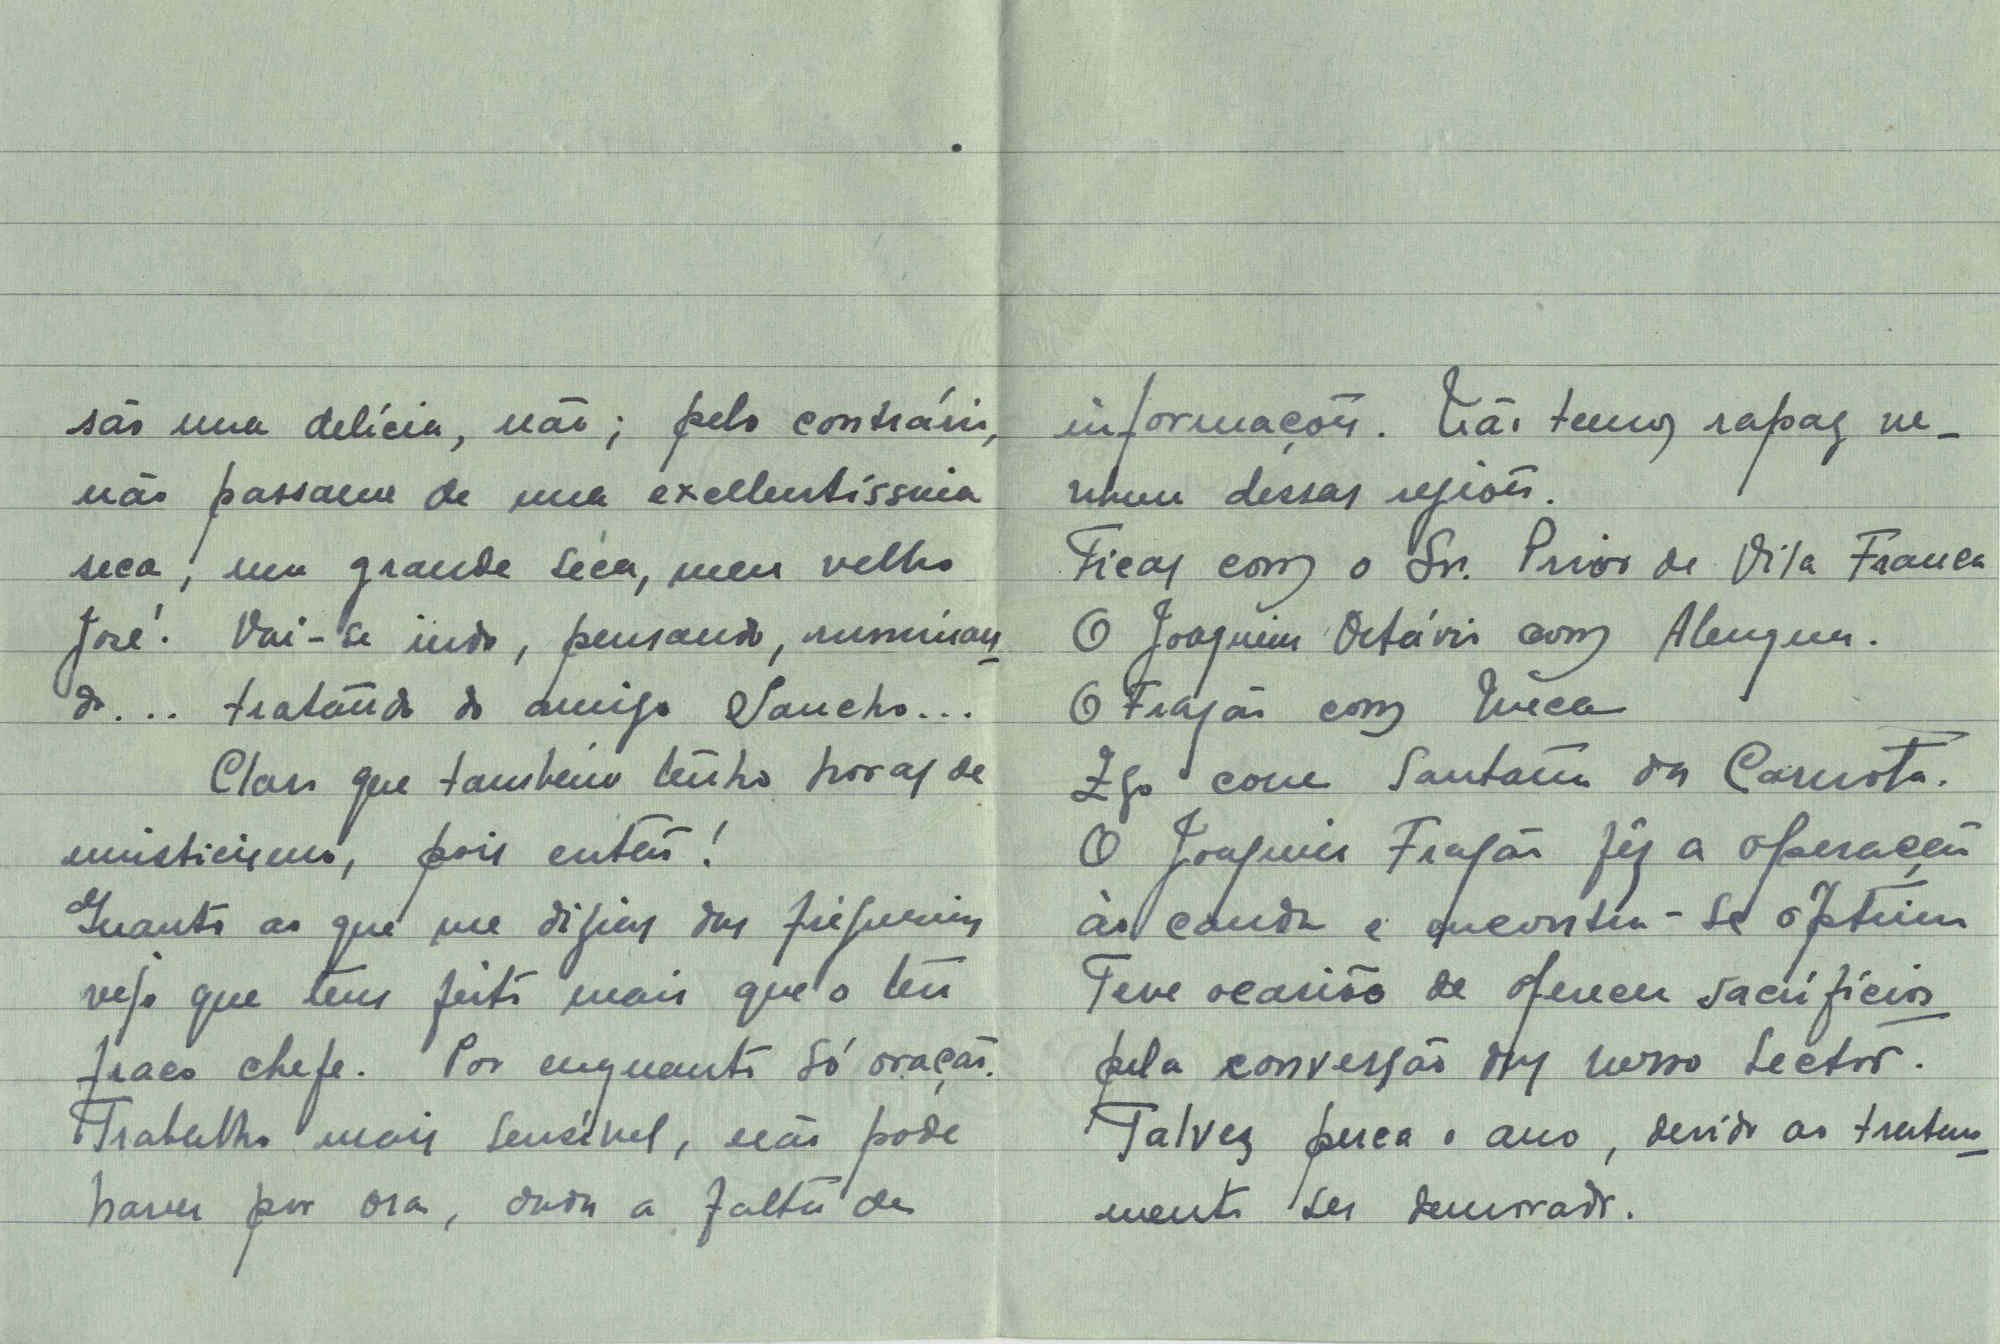 são uma delícia, não; pelo contrário,
não passam de uma excellentíssima
seca, uma grande seca, meu velho
José! Vai-se indo, pensando, ruminan-
do... tratando do amigo Sancho...
Claro que também tenho horas de
misticismo, pois então!
Quanto ao que me dizias das freguesias
vejo que tens feito mais que o teu
fraco chefe. Por enquanto só oração.
Trabalho mais sensível, não pode
haver por ora, dada a falta de
informações. Não temos rapaz ne-
nhum dessas regiões.
Ficas com o Sr. Prior de Vila Franca
O Joaquim Octávio com Alenquer.
O Fragão com
Ego com Santana da Carnota.
O Joaquim Fragão fez a operação
e encontra-se óptimo
Teve ocasião de oferecer sacrifícios
pela conversão do nosso Sector.
Talvez perca o ano, devido ao tratam-
ento ser demorado.